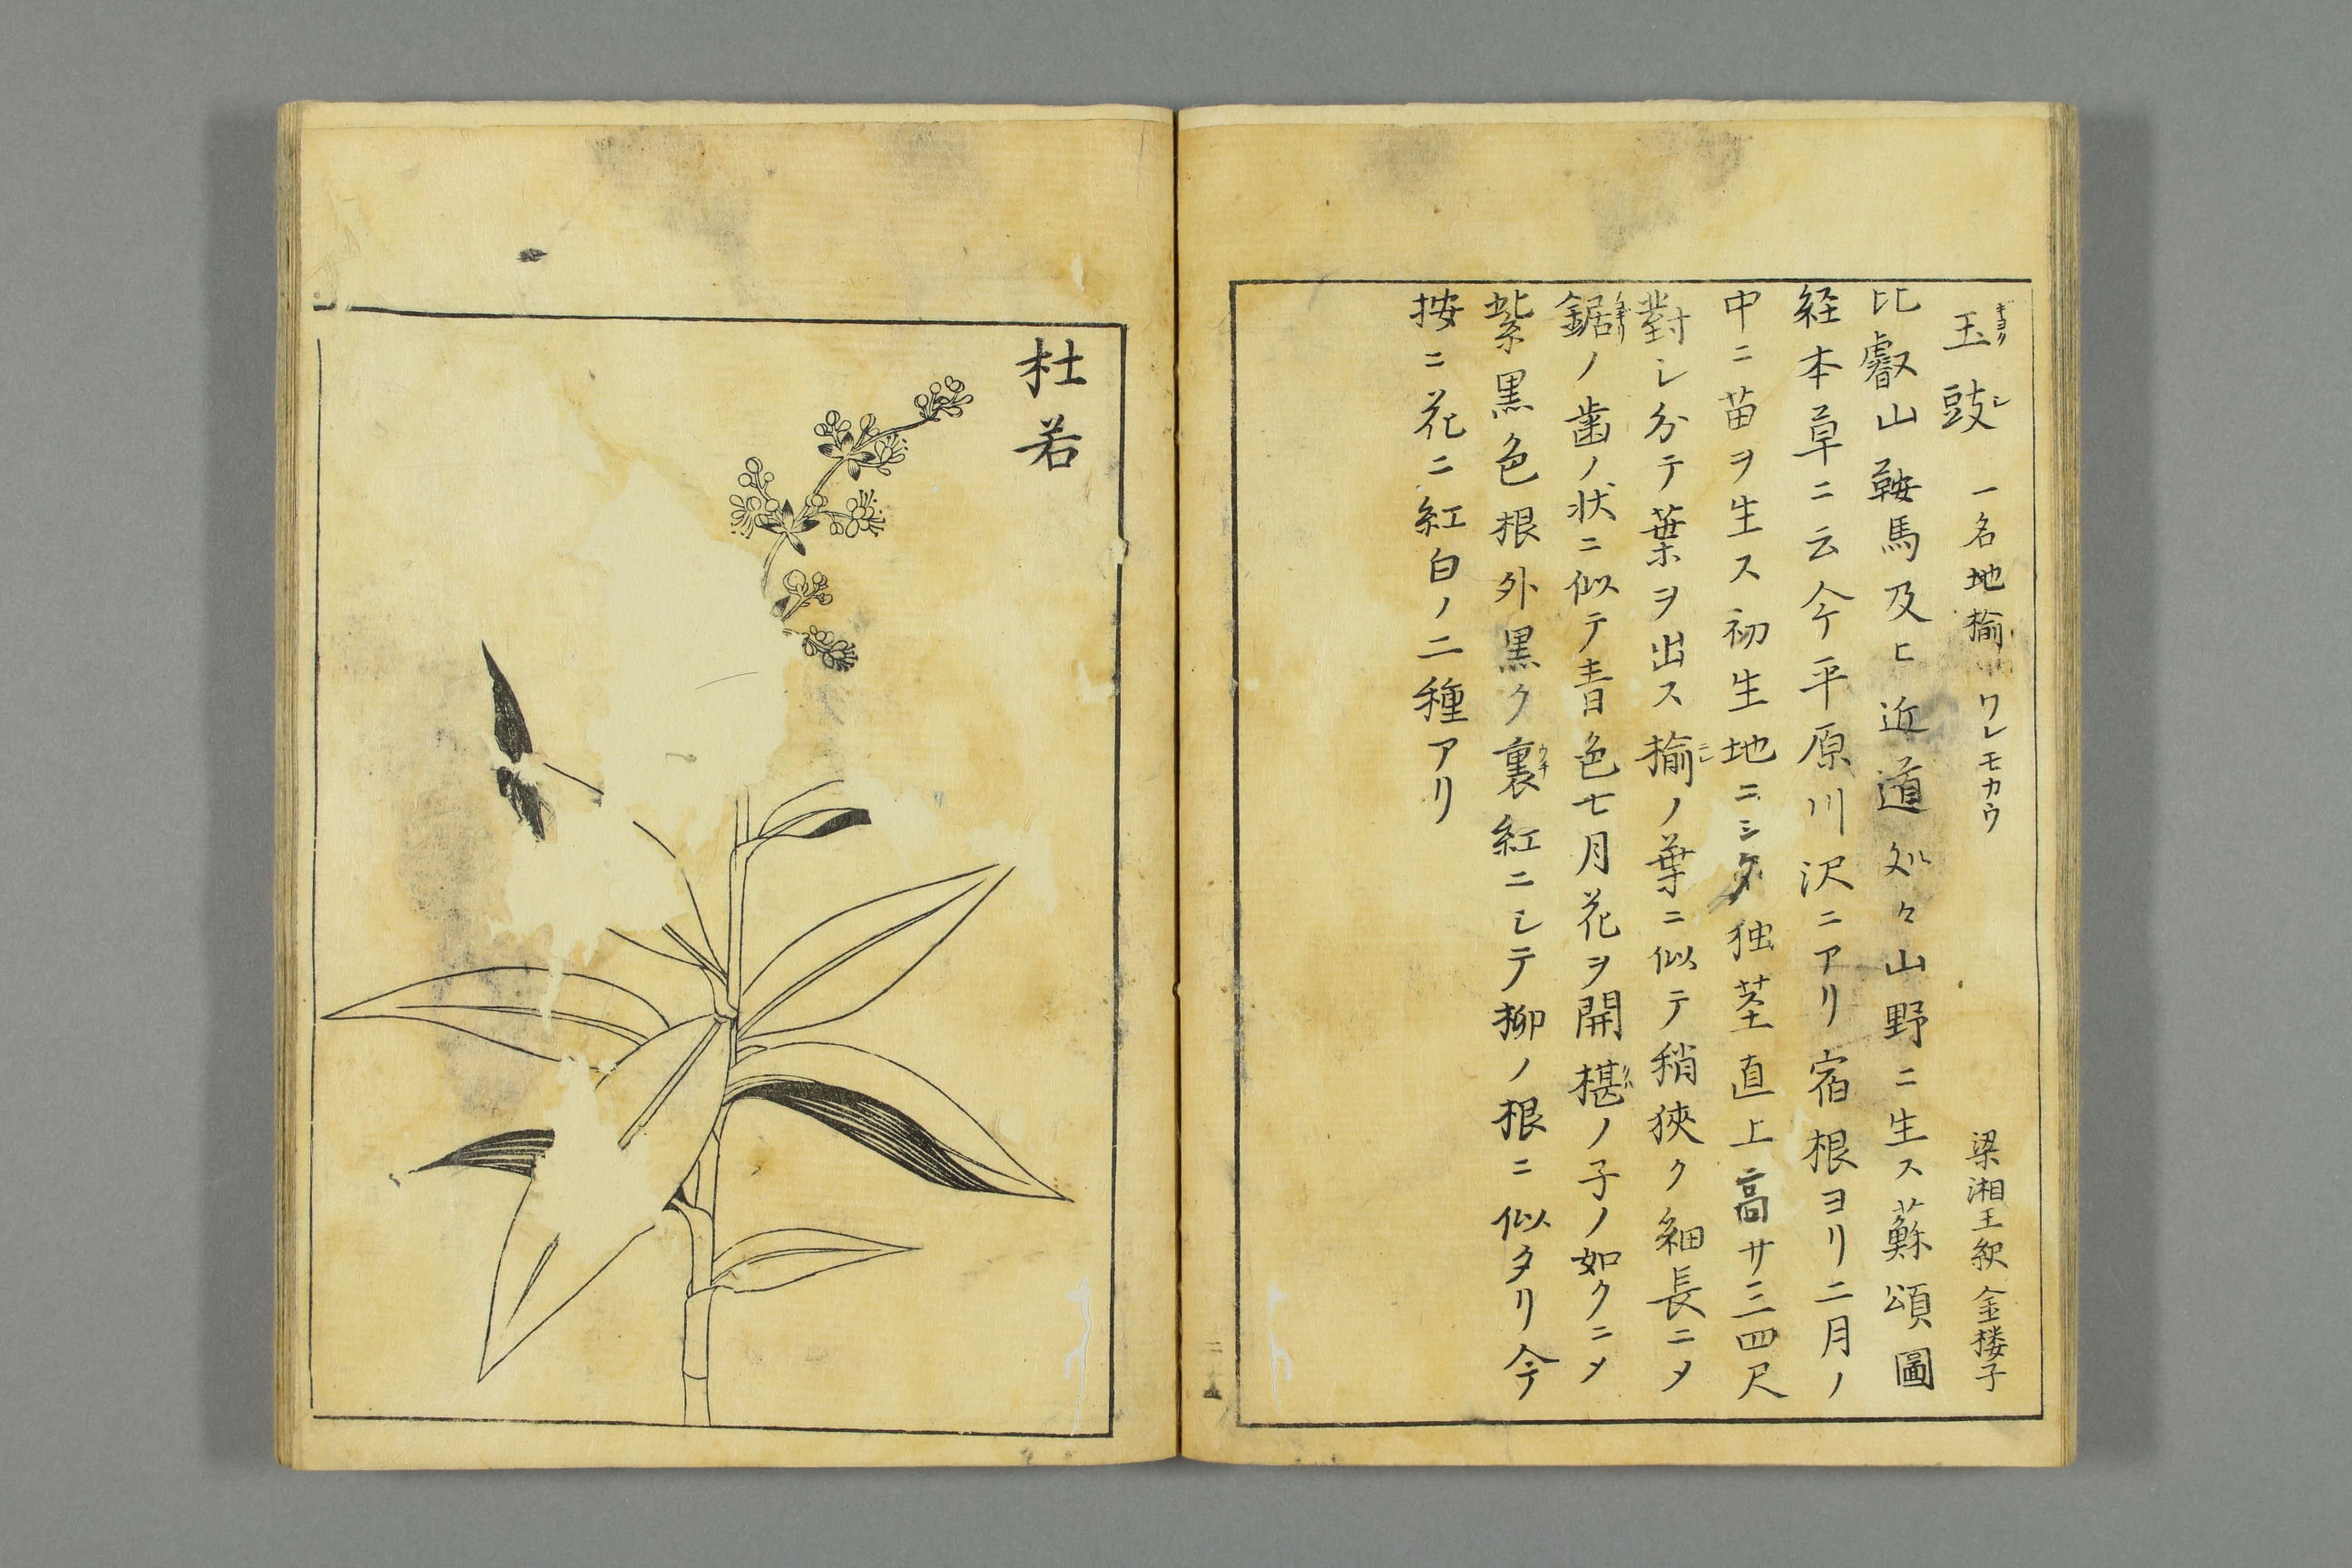 玉豉 一名地揄 ワレモカウ 梁湘王紀 金楼子
比叡山鞍馬及ヒ近道処々山野ニ生ス蘇頌圖
経本草ニ云今平原川沢ニアリ宿根ヨリ二月ノ
中ニ苗ヲ生ス初生地ニシタ独茎直上高サ三四尺
對シ分テ葉ヲ出ス揄ノ葉ニ似テ稍狹ク細長ニメ
鋸ノ歯ノ状ニ似テ青色七月花ヲ開椹ノ子ノ如クニメ
紫黒色根外黒ク裏紅ニシテ柳ノ根ニ似タリ今
按ニ花ニ紅白ノ二種アリ
杜若